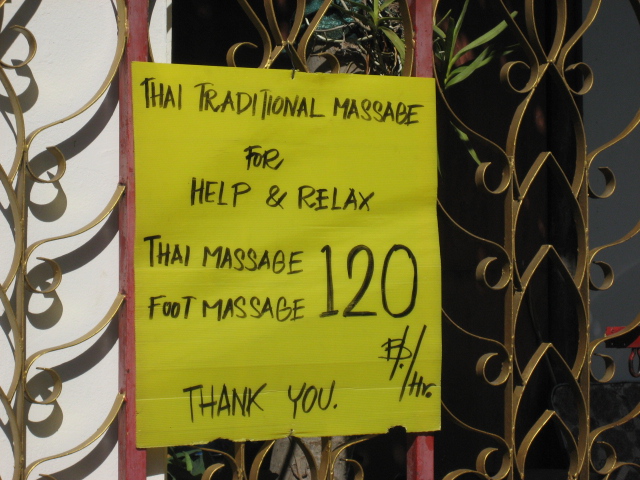 THAI TRADITIONAL MASSAGE
FOR
HELP & RELAX
THAI MASSAGE 120
FOOT MASSAGE
฿./Hr.
THANK YOU.